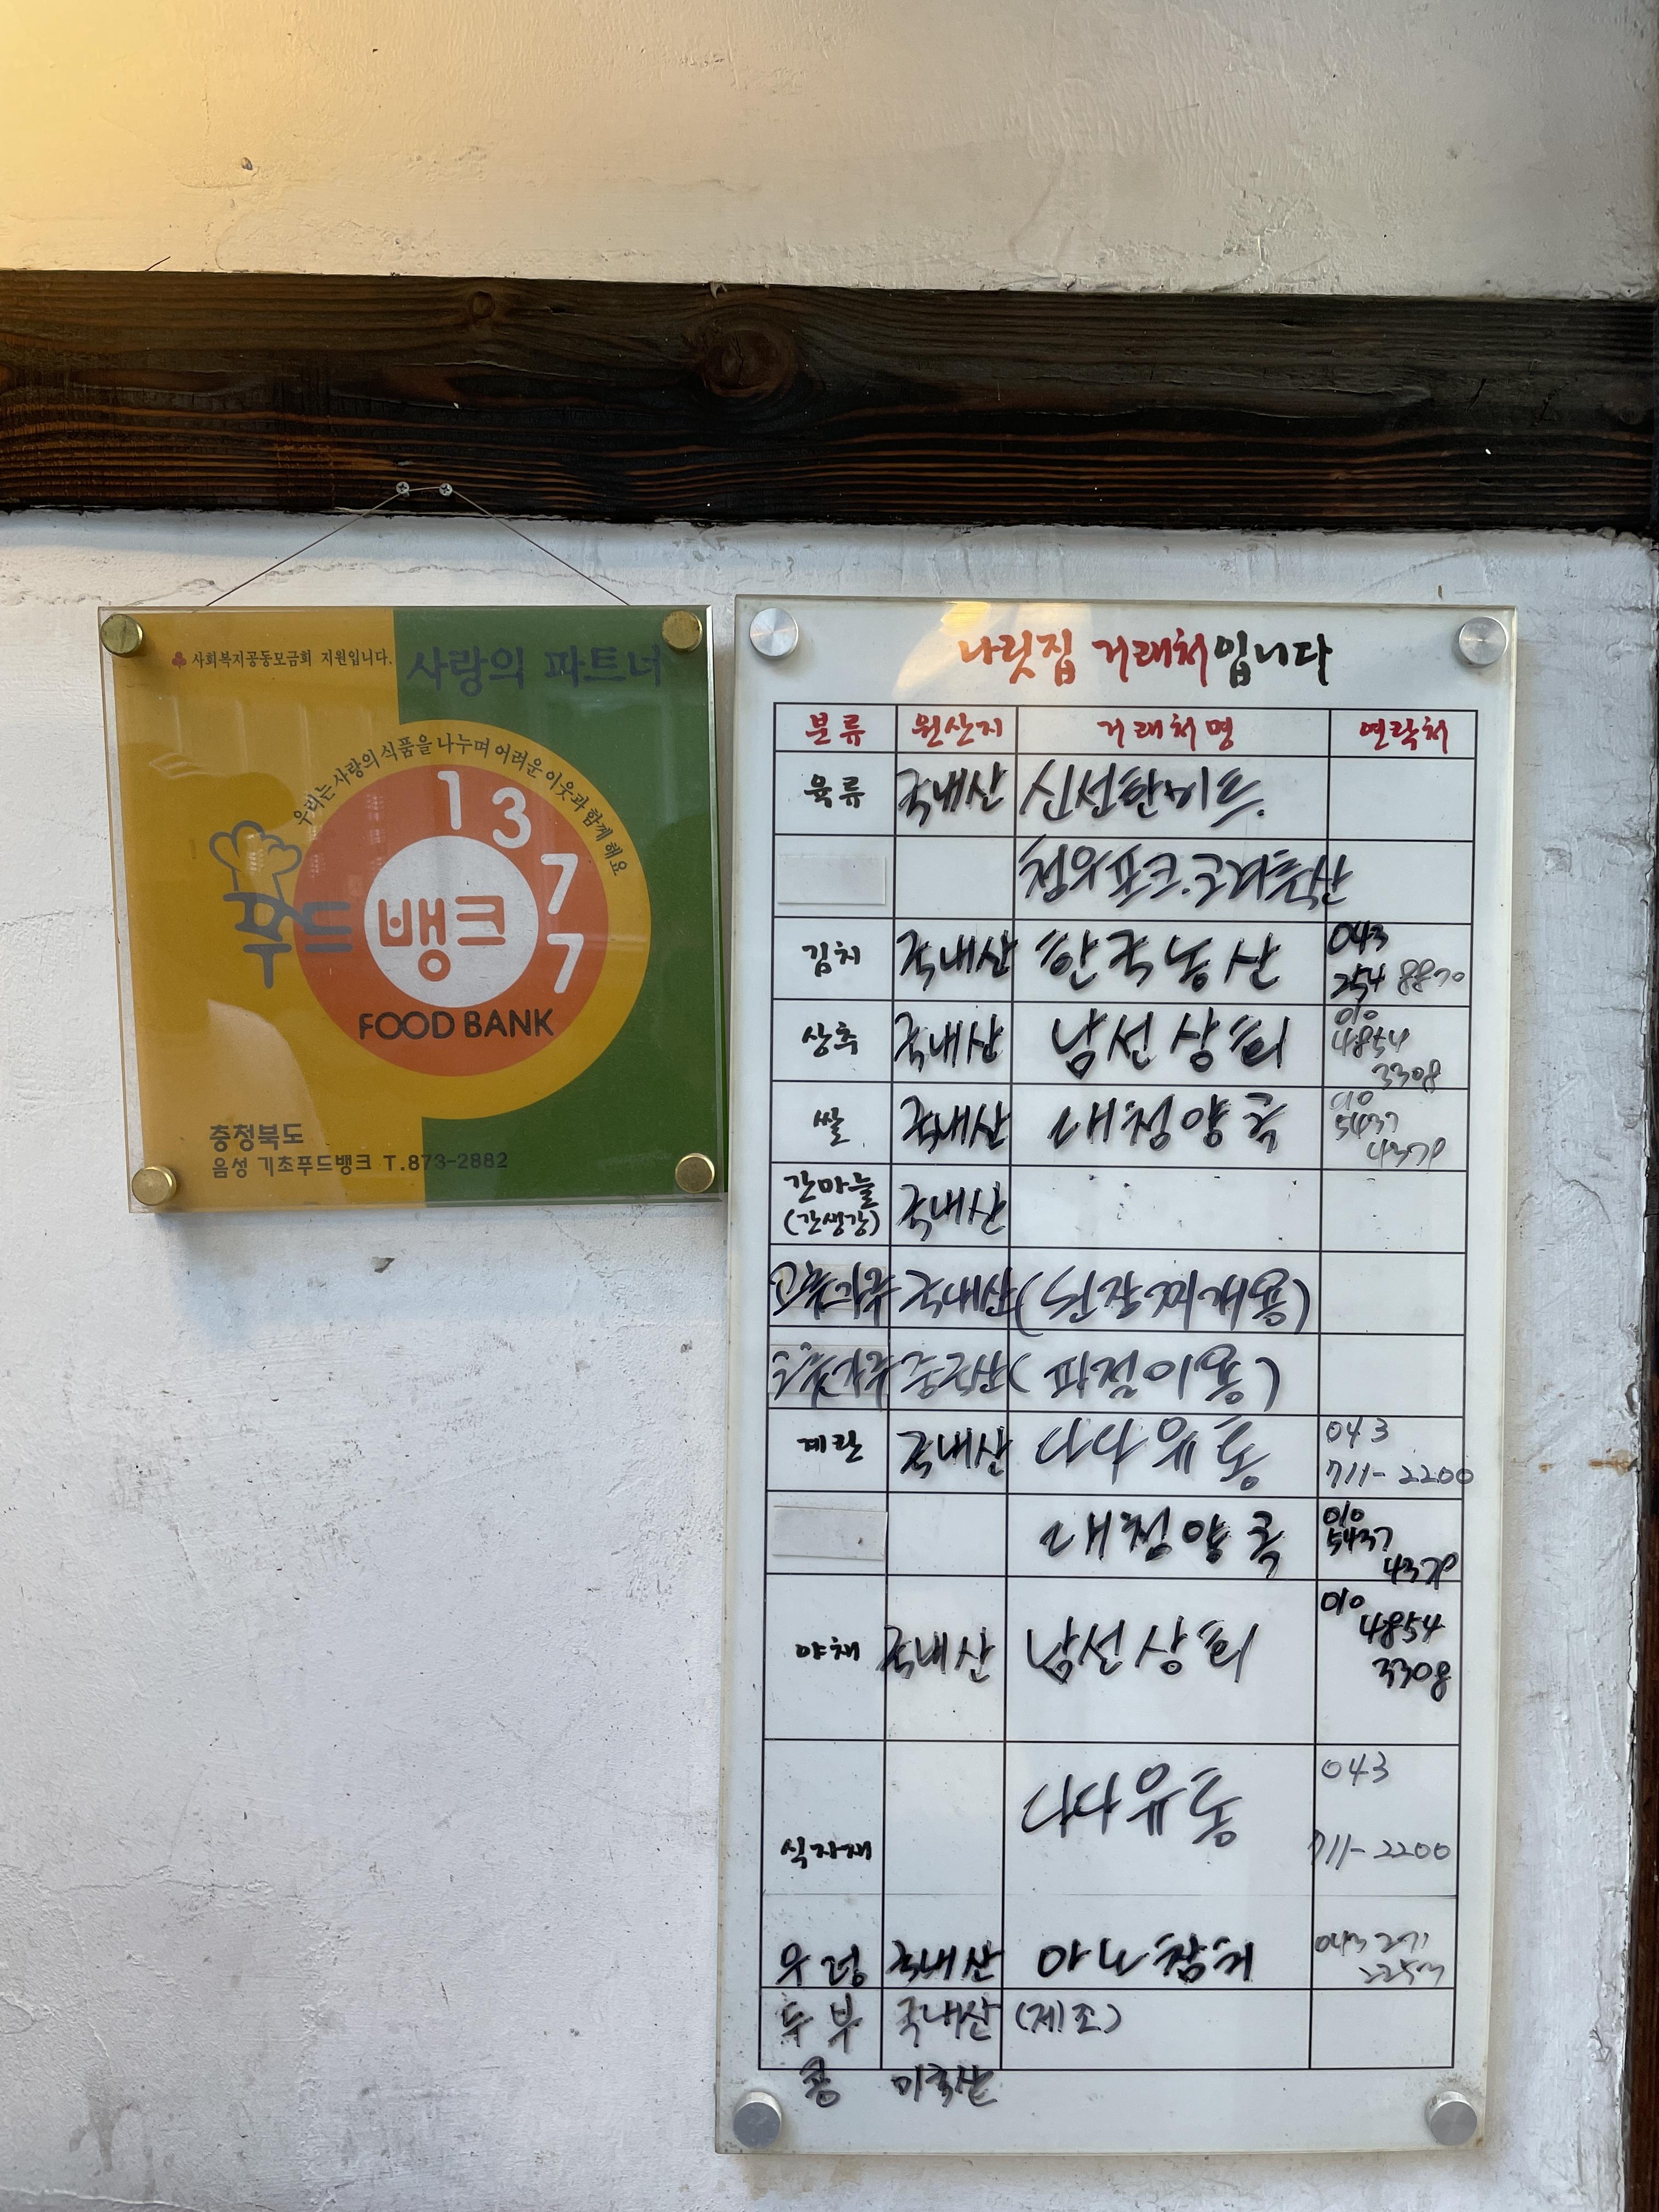 사회복지공동모금회 지원입니다.
사랑의 파트너
우리는 사랑의 식품을 나누며 어려운 이웃과 함께 해요
1377
푸드 뱅크
FOOD BANK
충청북도
음성 기초푸드뱅크 T.873-2882
나릿집 거래처입니다
분류 원산지 거래처명 연락처
육류 국내산 신선한미트.
청우푸드.
김치 국내산 한국농산 043 254 8870
상추 국내산 남선상회 010 4854 3308
쌀 국내산 대청양곡 010 5437 4370
간마늘 (간생강) 국내산
고춧가루 국내산
고춧가루 중국산
계란 국내산 다다유통 043 711-2200
대청양곡 010 5437 4370
야채 국내산 남선상회 010 4854 3308
식자재 다다유통 043 711-2200
우렁 국내산 043 271 2253
두부 국내산 (제조)
콩 미국산